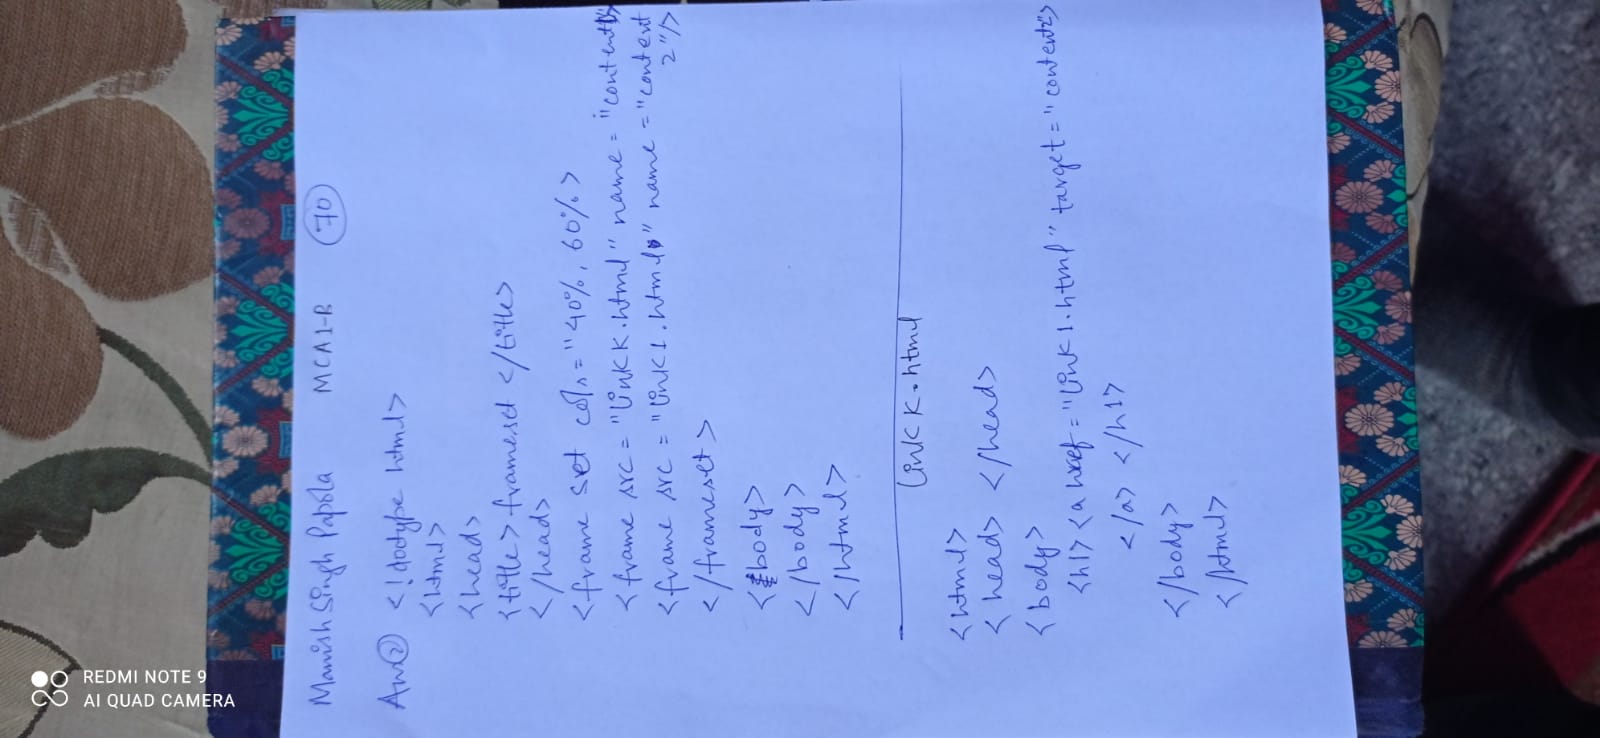 Manish Singh Papola MCA1-B 70
Ans2 <!doctype html>
<html>
<head>
<title>frameset </title>
</head>
<frame set cols="40%, 60%>
<frame src="linkk.html" name="content1">
<frame src="link1.html" name="content
2"/>
</frameset>
<body>
</body>
</html>
linkk.html
<html>
<head> </head>
<body>
<h1><a href="link1.html" target="content2">
</a> </h1>
</body>
</html>
REDMI NOTE 9
AI QUAD CAMERA